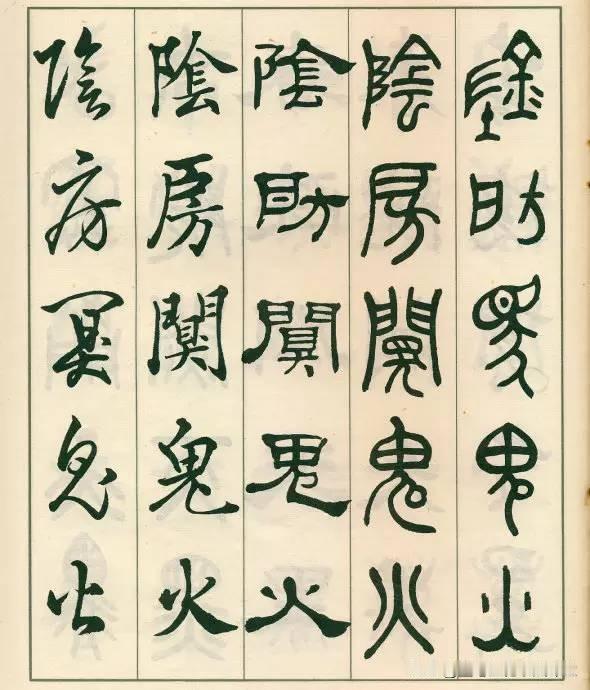 陰房闃鬼火
陰房闃鬼火
陰房闃鬼火
陰房闃鬼火
陰房闃鬼火